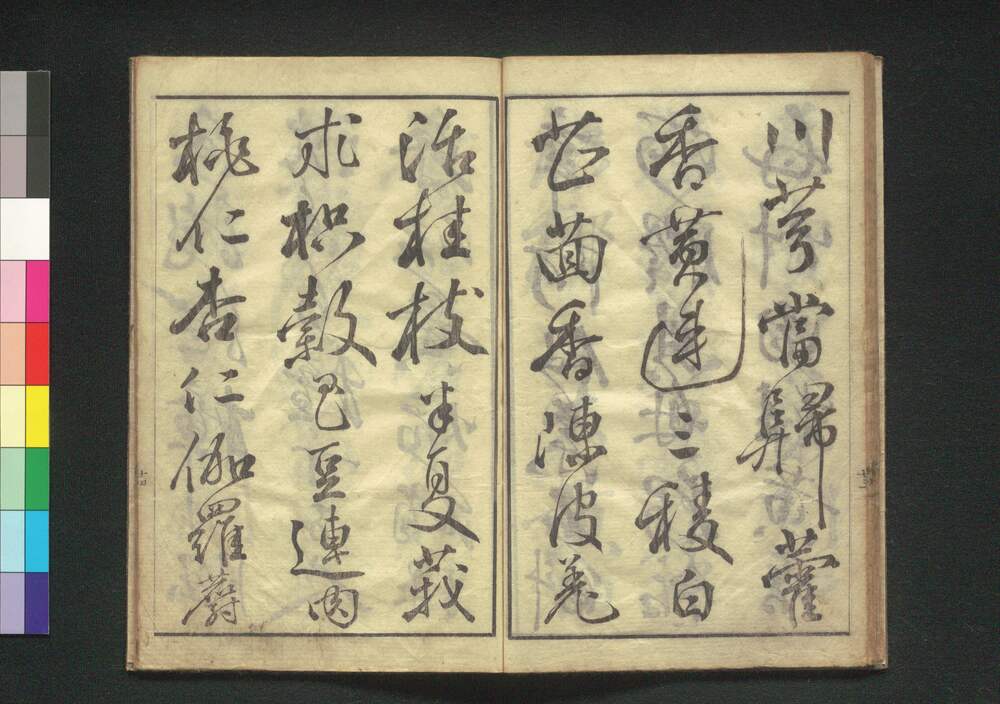 川芎當歸藿
香黄連三稜白
芷茴香陳皮羌
活桂枝半夏莪
朮枳殻巴豆連肉
桃仁杏仁伽羅麝